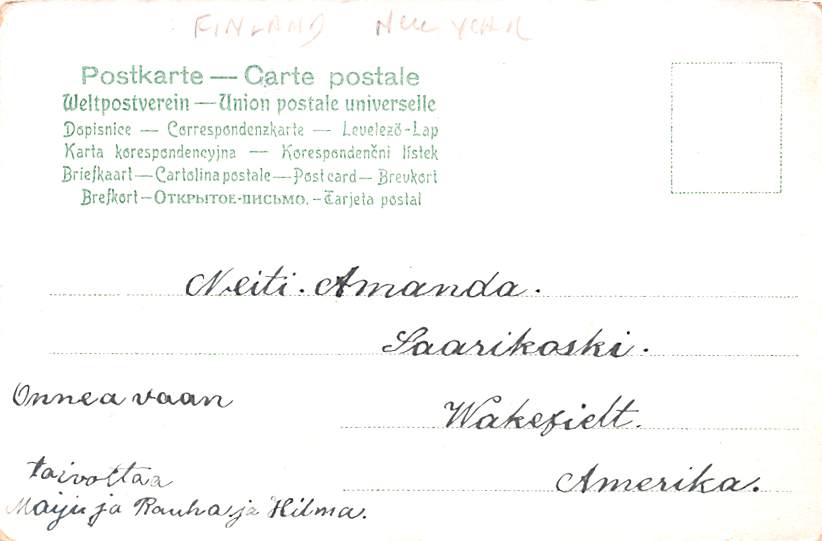 FINLAND New YEAR
Postkarte — Carte postale
Weltpostverein — Union postale universelle
Dopisnice — Correspondenzkarte — Levelező-Lap
Karta korespondencyjna — Korespondenční lístek
Briefkaart — Cartolina postale — Post card — Brevkort
Brefkort — Открытое-письмо. — Tarjeta postal
Neiti. Amanda.
Saarikoski.
Onnea vaan
Wakefielt.
toivottaa
Amerika.
Maiju ja Rauha ja Hilma.